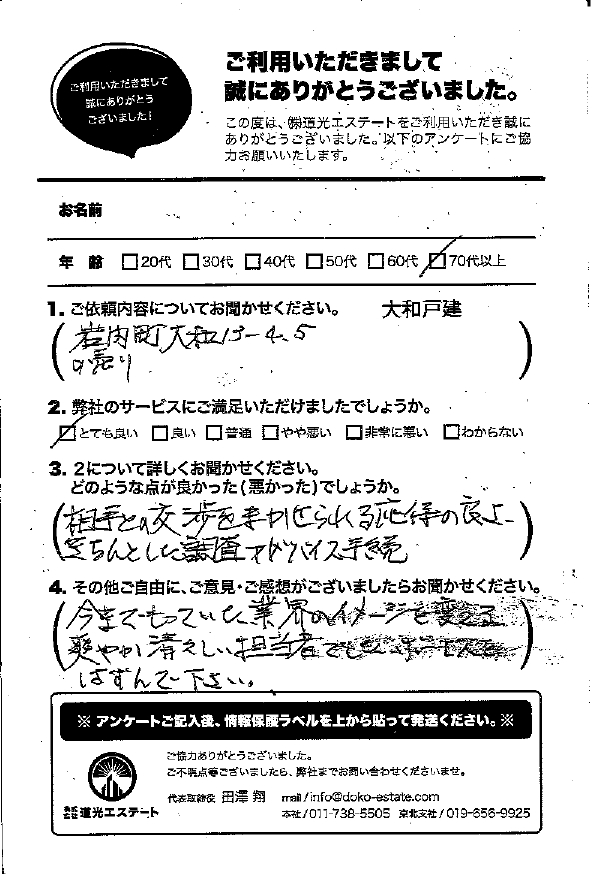 ご利用いただきまして
誠にありがとう
ございました!
ご利用いただきまして
誠にありがとうございました。
この度は、㈱道光エステートをご利用いただき誠に
ありがとうございました。以下のアンケートにご協
力お願いいたします。
お名前
年 齢 □20代 □30代 □40代 □50代 □60代 ☑70代以上
1. ご依頼内容についてお聞かせください。 大和戸建
岩内町大和13-4.5
の売り
2. 弊社のサービスにご満足いただけましたでしょうか。
☑とても良い □良い □普通 □やや悪い □非常に悪い □わからない
3. 2について詳しくお聞かせください。
どのような点が良かった(悪かった)でしょうか。
相手との交渉をまかせられる応待の良さ
きちんとした調査アドバイス手続
4. その他ご自由に、ご意見・ご感想がございましたらお聞かせください。
今までもっていた業界のイメージを変える
爽やか清々しい担当者でした
はずんで下さい。
※ アンケートご記入後、情報保護ラベルを上から貼って発送ください。※
ご協力ありがとうございました。
ご不明点等ございましたら、弊社までお問い合わせくださいませ。
株式会社 道光エステート
代表取締役 田澤 翔 mail/info@doko-estate.com
本社/011-738-5505 京北支社/019-656-9925